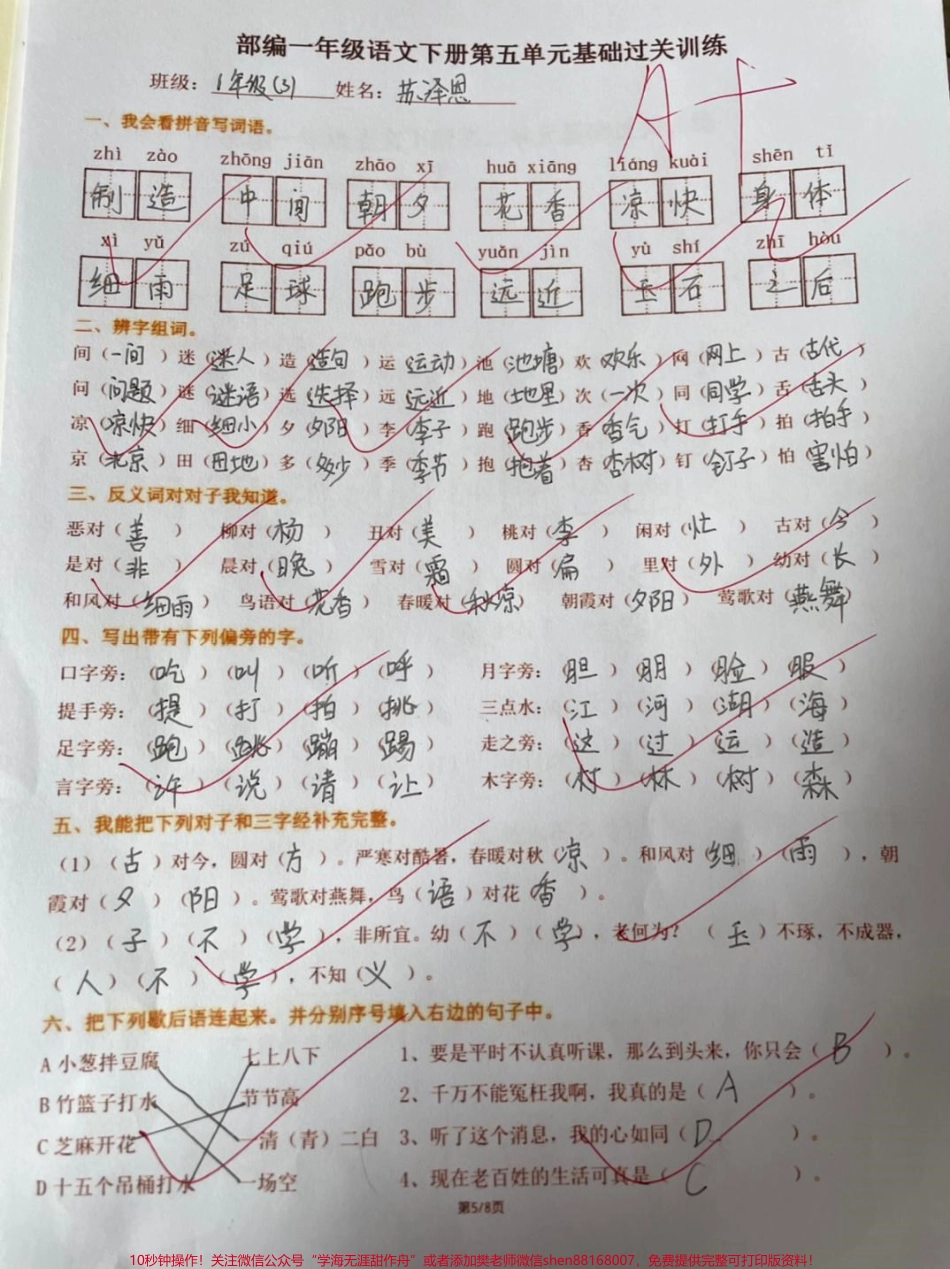 部编一年级语文下册第五单元基础过关训练
班级：1年级(3) 姓名：苏泽恩
A+
一、我会看拼音写词语。
zhì zào zhōng jiān zhāo xī huā xiāng liáng kuài shēn tǐ
制造 中间 朝夕 花香 凉快 身体
xì yǔ zú qiú pǎo bù yuǎn jìn yù shí zhī hòu
细雨 足球 跑步 远近 玉石 之后
二、辨字组词。
间（一间）迷（迷人）造（造句）运（运动）池（池塘）欢（欢乐）网（网上）古（古代）
问（问题）谜（谜语）选（选择）远（远近）地（地里）次（一次）同（同学）舌（舌头）
凉（凉快）细（细小）夕（夕阳）李（李子）跑（跑步）香（香气）打（打手）拍（拍手）
京（北京）田（田地）多（多少）季（季节）抱（抱着）杏（杏树）钉（钉子）怕（害怕）
三、反义词对对子我知道。
恶对（善）柳对（杨）丑对（美）桃对（李）闲对（忙）古对（今）
是对（非）晨对（晚）雪对（霜）圆对（扁）里对（外）幼对（长）
和风对（细雨）鸟语对（花香）春暖对（秋凉）朝霞对（夕阳）莺歌对（燕舞）
四、写出带有下列偏旁的字。
口字旁：（吃）（叫）（听）（呼） 月字旁：（胆）（朋）（脸）（服）
提手旁：（提）（打）（拍）（挑） 三点水：（江）（河）（湖）（海）
足字旁：（跑）（跳）（蹦）（踢） 走之旁：（这）（过）（运）（造）
言字旁：（许）（说）（请）（让） 木字旁：（村）（林）（树）（森）
五、我能把下列对子和三字经补充完整。
（1）（古）对今，圆对（方）。严寒对酷暑，春暖对秋（凉）。和风对（细）（雨），朝
霞对（夕）（阳）。莺歌对燕舞，鸟（语）对花（香）。
（2）（子）（不）（学），非所宜。幼（不）（学），老何为？（玉）不琢，不成器，
（人）（不）（学），不知（义）。
六、把下列歇后语连起来。并分别序号填入右边的句子中。
A 小葱拌豆腐 七上八下 1、要是平时不认真听课，那么到头来，你只会（B）。
B 竹篮子打水 节节高 2、千万不能冤枉我啊，我真的是（A）。
C 芝麻开花 一清（青）二白 3、听了这个消息，我的心如同（D）。
D 十五个吊桶打水 一场空 4、现在老百姓的生活可真是（C）。
第5/8页
10秒钟操作！关注微信公众号“学海无涯甜作舟”或者添加樊老师微信shen88168007，免费提供完整可打印版资料！